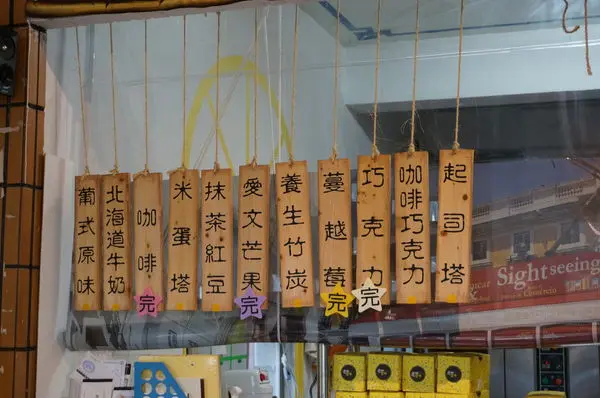 葡式原味
北海道牛奶
咖啡
米蛋塔
抹茶紅豆
愛文芒果
養生竹炭
蔓越莓
巧克力
咖啡巧克力
起司塔
完
完
完
完
Sightseeing